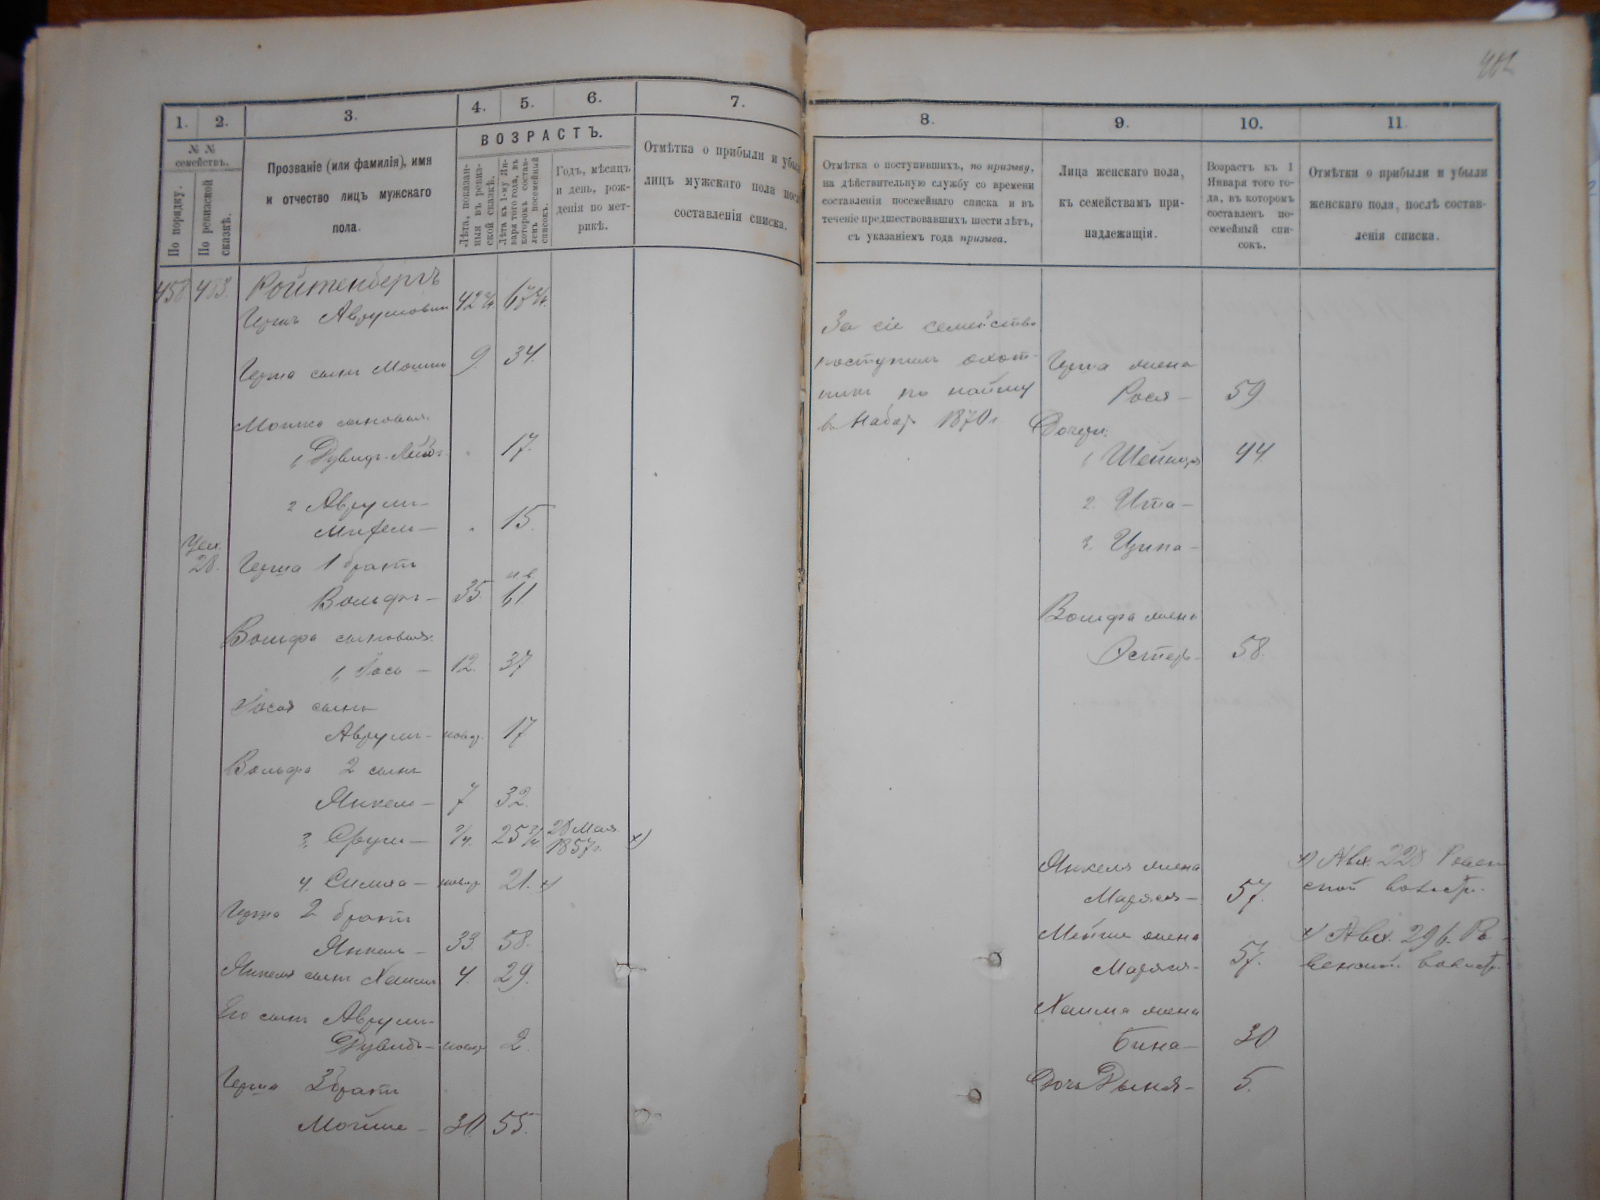 1. 2. 3. 4. 5. 6. 7.
№ №
семействъ.
По порядку.
По ревизской
сказкѣ.
Прозваніе (или фамилія), имя
и отчество лицъ мужскаго
пола.
ВОЗРАСТЪ.
Лѣта, показан-
ныя въ ревиз-
ской сказкѣ.
Лѣта къ 1-му Ян-
варя того года, въ
которомъ состав-
ленъ посемейный
списокъ.
Годъ, мѣсяцъ
и день, рож-
денія по мет-
рикѣ.
Отмѣтка о прибыли и убы
лицъ мужскаго пола посл
составленія списка.
458 483. Ройтенбергъ
Гершъ Аврумовичъ 42 67
Герша сынъ Мошко 9. 34.
Мошка сыновья:
1, Дувидъ-Лейб 17.
2 Аврумъ-
15.
28. Герша 1 братъ
Вольфъ — 35 61
Вольфа сыновья:
1, Іось — 12. 37
Іося сынъ
Аврумъ — новор. 17
Вольфа 2 сынъ
Янкель — 7 32.
3, Сруль — 3/4. 25 3/4 28 Мая
1857 г. х)
4. Симха — новор 21. х)
Герша 2 братъ
Янкель — 33. 58.
Янкеля сынъ Хаимъ 4. 29.
Его сынъ Аврумъ-
Дувидъ — новор 2.
Герша 3 братъ
Мойше — 30. 55.
8. 9. 10. 11.
Отмѣтка о поступившихъ, по призыву,
на дѣйствительную службу со времени
составленія посемейнаго списка и въ
теченіе предшествовавшихъ шести лѣтъ,
съ указаніемъ года призыва.
Лица женскаго пола,
къ семействамъ при-
надлежащія.
Возрастъ къ 1
Января того го-
да, въ которомъ
составленъ по-
семейный спи-
сокъ.
Отмѣтки о прибыли и убыли
женскаго пола, послѣ состав-
ленія списка.
За сіе семейство
поступилъ охот-
никъ по найму
въ Наборъ 1870 г
Герша жена
Рося — 59
Дочери:
1, 44.
2. Ита —
3. Ципа —
Вольфа жена
Эстеръ — 58.
Янкеля жена
Маряся — 57.
Мейше жена
Маряся — 57.
Хаима жена
Бина — 30
Дочь Дыня — 5.
х) 228 Ровен
ской
х) 296. Ро-
венской